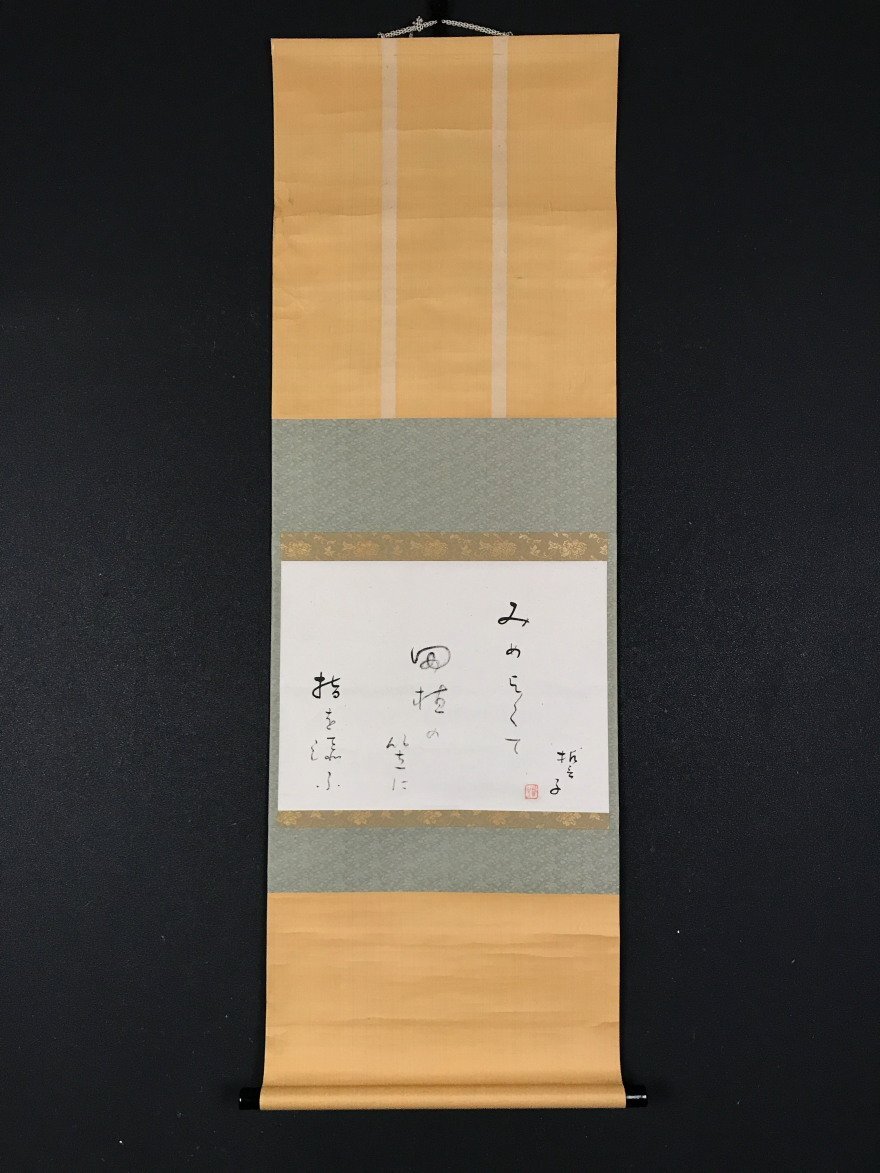 誓子
みめよくて
田植の
笠に
指を
添ふ